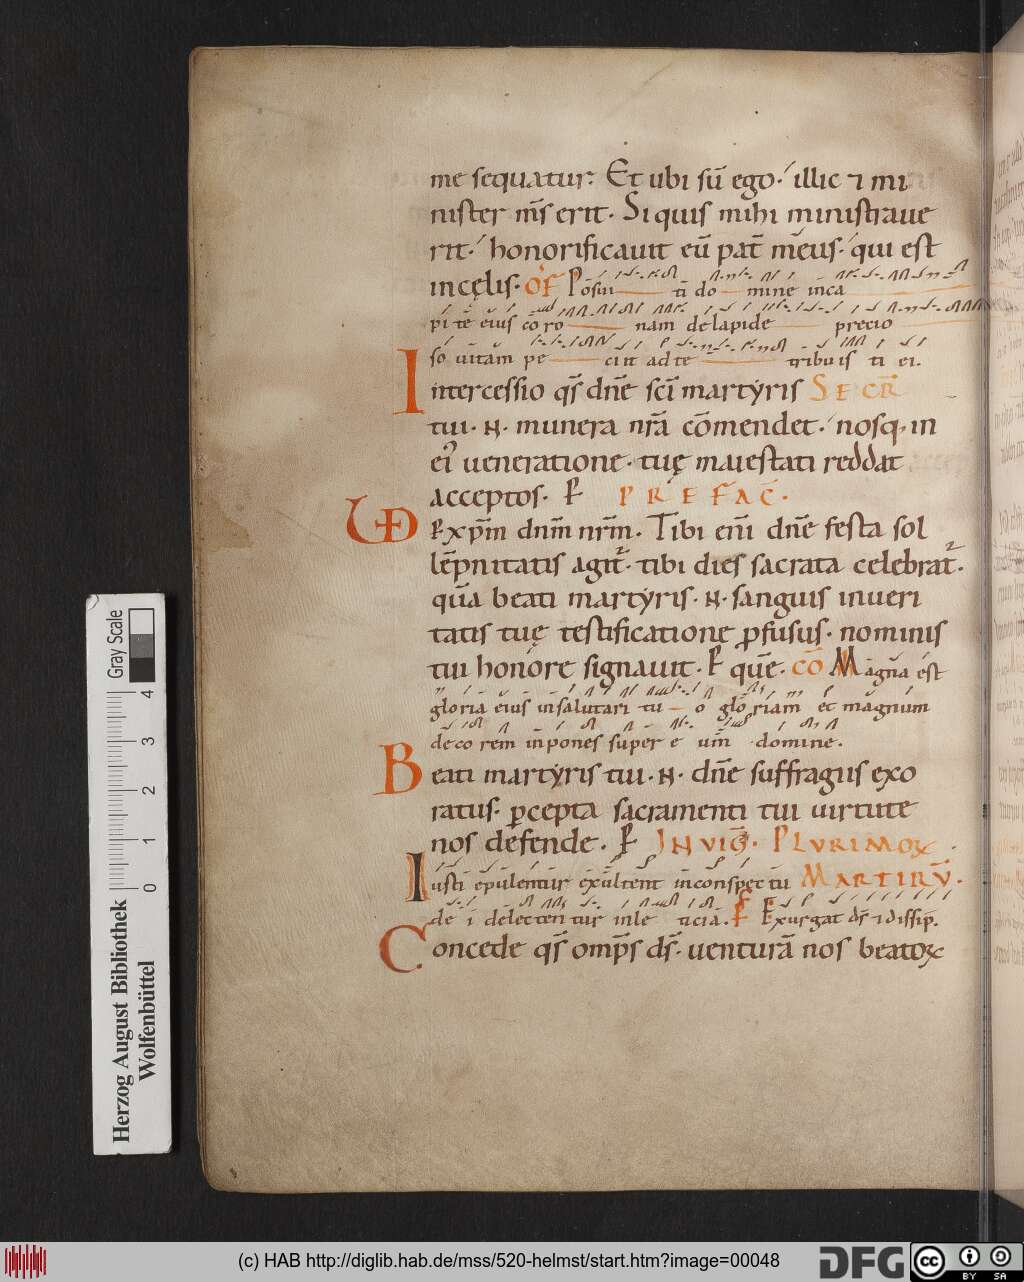 me sequatur. Et ubi sū ego. illic ⁊ mi
nister m̄s erit. Si quis mihi ministraue
rit. honorificauit eū pat̄ m̄eus. qui est
in cęlis. OF Posui ti do mine in ca
pi te eius co ro nam de lapide precio
so uitam pe ciit ad te tribuis ti ei.
Intercessio qs̄ dn̄e sc̄i martyris SECR̄
tui. N. munera nr̄a cōmendet. nosq; in
ei' ueneratione. tuę maiestati reddat
acceptos. P PREFAC̄.
UD P xp̄m dnm̄ nrm̄. Tibi eni dn̄e festa sol
lēpnitatis agit̄. tibi dies sacrata celebrat̄.
quā beati martyris. N. sanguis in ueri
tatis tuę testificatione ꝑfusus. nominis
tui honore signauit. P quē. CŌ Magna est
gloria eius in salutari tu o glo riam et magnum
deco rem in pones super e um domine.
Beati martyris tui. N. dn̄e suffragiis exo
ratus. ꝑcepta sacramenti tui uirtute
nos defende. P IN UIG̅. PLURIMOꝜ
Iusti epulentur exultent in conspec tu MARTIRŪ.
de i delecten tur in le ticia. P Exurgat ds̄ ⁊ dissip̄.
Concede qs̄ omp̄s ds̄. uenturā nos beatoꝝ
Gray Scale
4
3
2
1
0
Herzog August Bibliothek
Wolfenbüttel
(c) HAB http://diglib.hab.de/mss/520-helmst/start.htm?image=00048
DFG
cc
BY SA